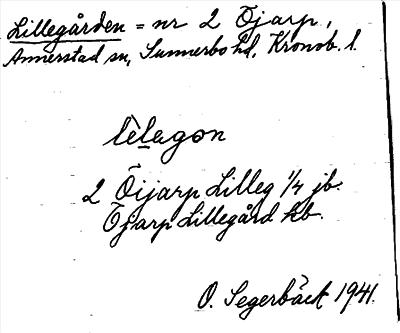 Lillegården = nr 2 Öjarp,
Annerstad sn, Sunnerbo hd, Kronob. l.
lèlagon
2 Öijarp Lilleg 1/4 jb.
Öjarp Lillegård kb.
O. Segerbäck 1941.